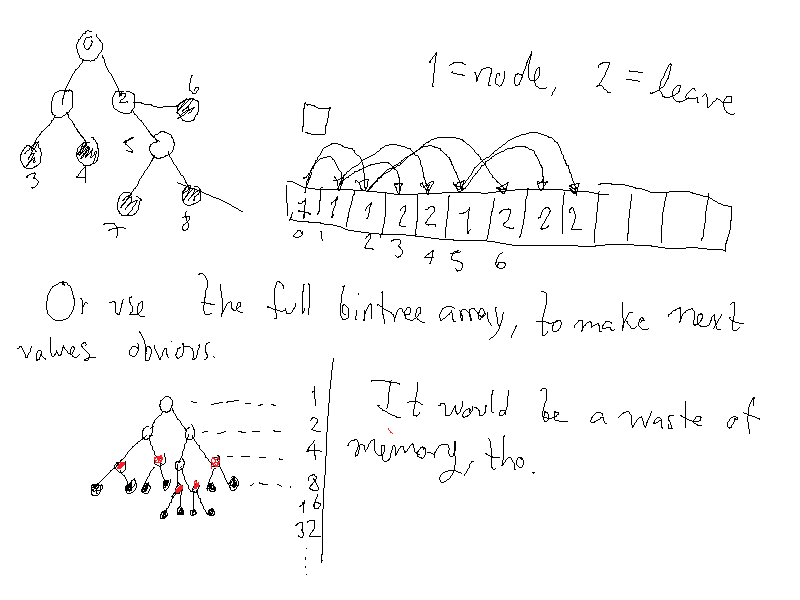 0
1 = node, 2 = leave
1 2 6
5
3 4
7 8
1 1 1 2 2 1 2 2 2
0 1 2 3 4 5 6
Or use the full bintree array, to make next
values obvious.
1
2
4
8
16
32
It would be a waste of
memory, tho.